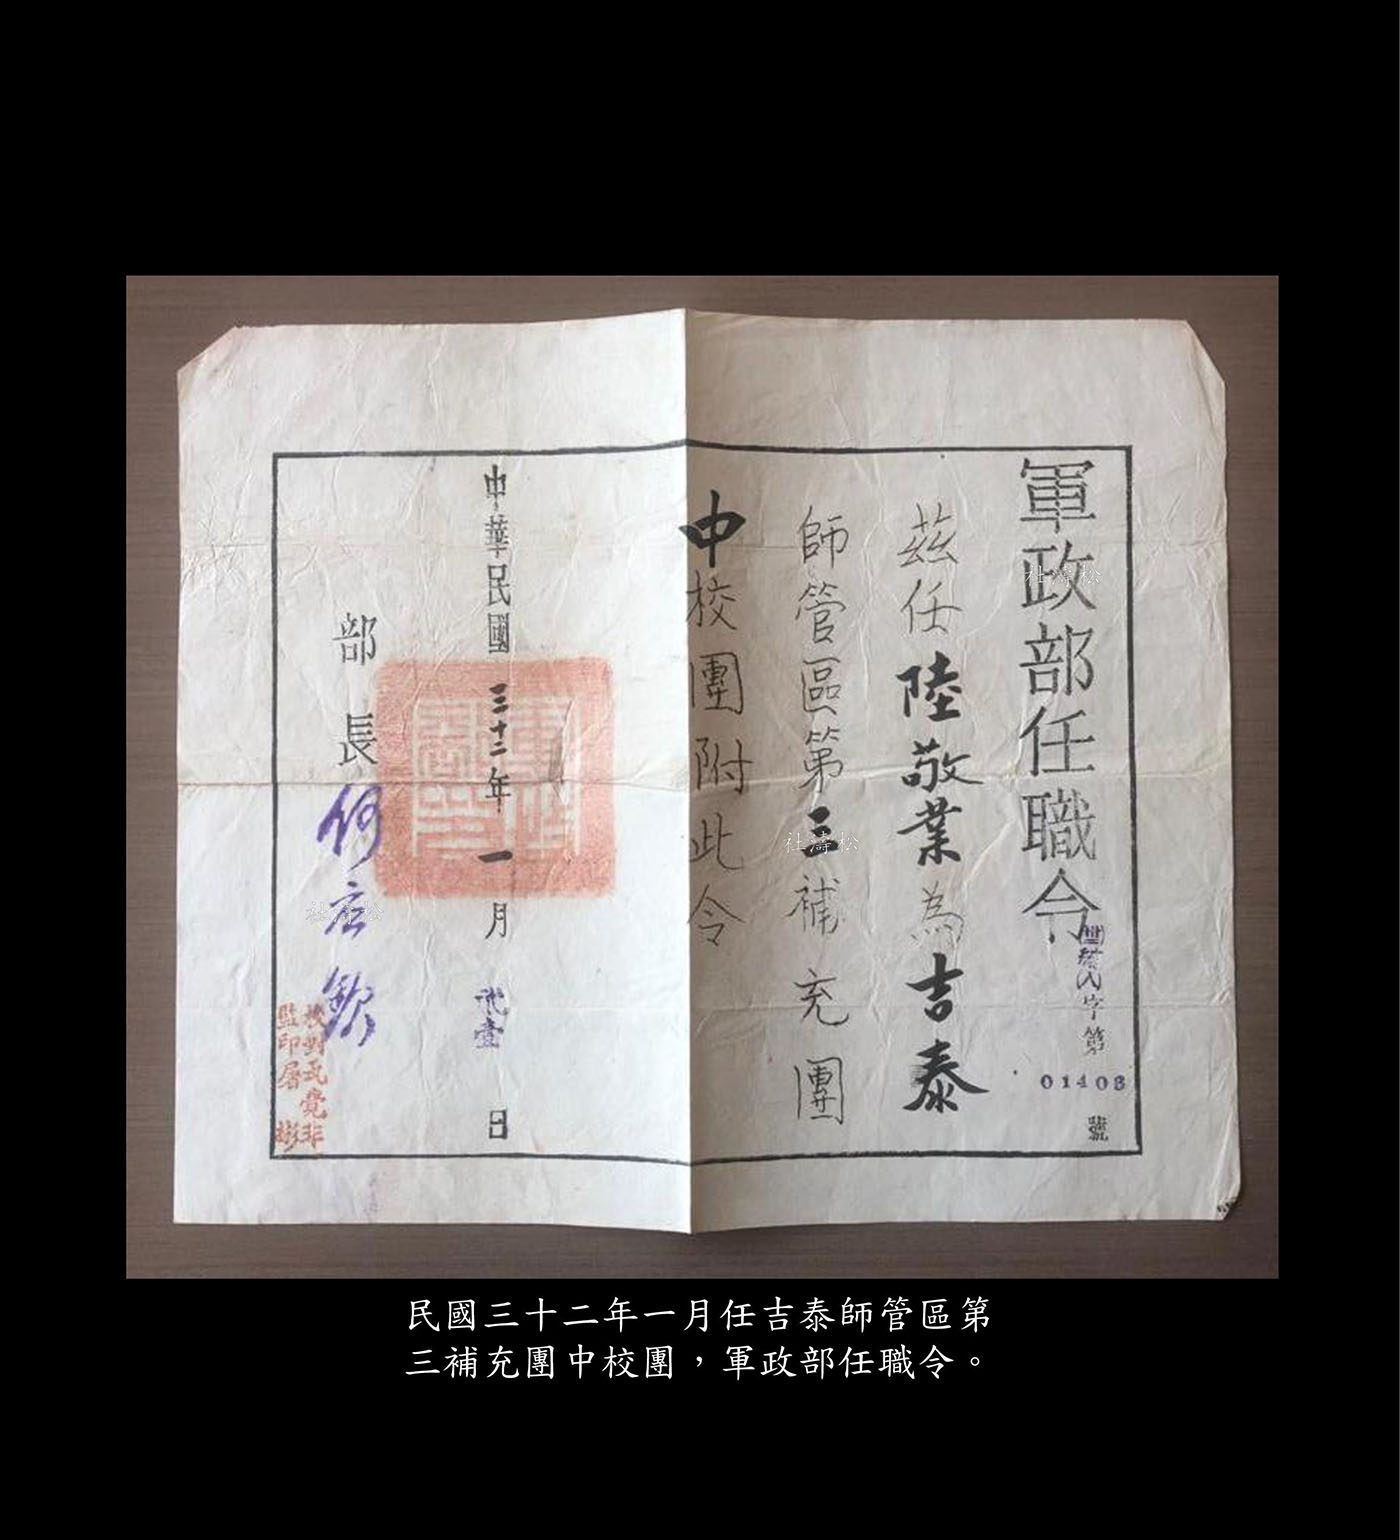 軍政部任職令
字第
01403
號
茲任陸敬業為吉泰
師管區第三補充團
中校團附此令
中華民國三十二年一月貳壹日
部長何应欽
校對
監印
松濤社
松濤社
松濤社
民國三十二年一月任吉泰師管區第
三補充團中校團，軍政部任職令。